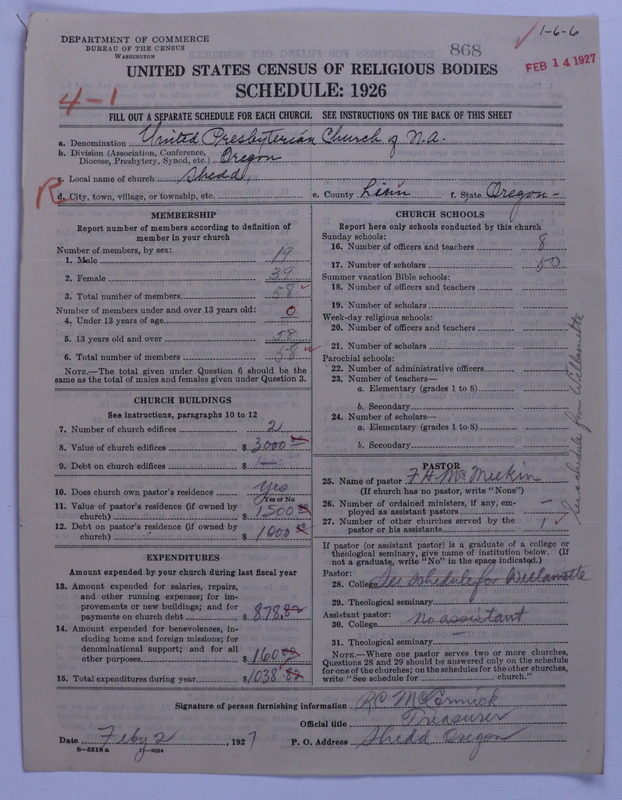 DEPARTMENT OF COMMERCE
BUREAU OF THE CENSUS
WASHINGTON
868
1-6-6
FEB 14 1927
UNITED STATES CENSUS OF RELIGIOUS BODIES
SCHEDULE: 1926
4-1
FILL OUT A SEPARATE SCHEDULE FOR EACH CHURCH. SEE INSTRUCTIONS ON THE BACK OF THIS SHEET
a. Denomination United Presbyterian Church of N.A.
b. Division (Association, Conference, Diocese, Presbytery, Synod, etc.) Oregon
c. Local name of church Shedd,
R
d. City, town, village, or township, etc. e. County Linn f. State Oregon-
MEMBERSHIP
Report number of members according to definition of
member in your church
Number of members, by sex:
1. Male 19
2. Female 39
3. Total number of members 58
Number of members under and over 13 years old:
4. Under 13 years of age 0
5. 13 years old and over 58
6. Total number of members 58
NOTE.—The total given under Question 6 should be the
same as the total of males and females given under Question 3.
CHURCH BUILDINGS
See instructions, paragraphs 10 to 12
7. Number of church edifices 2
8. Value of church edifices $ 3000 00
9. Debt on church edifices $ —
10. Does church own pastor's residence Yes
(Yes or No)
11. Value of pastor's residence (if owned by
church) $ 1500 00
12. Debt on pastor's residence (if owned by
church) $ 1000
EXPENDITURES
Amount expended by your church during last fiscal year
13. Amount expended for salaries, repairs,
and other running expenses; for im-
provements or new buildings; and for
payments on church debt $ 878.82
14. Amount expended for benevolences, in-
cluding home and foreign missions; for
denominational support; and for all
other purposes $ 160 00
15. Total expenditures during year $ 1038.82
CHURCH SCHOOLS
Report here only schools conducted by this church
Sunday schools:
16. Number of officers and teachers 8
17. Number of scholars 50
Summer vacation Bible schools:
18. Number of officers and teachers
19. Number of scholars
Week-day religious schools:
20. Number of officers and teachers
21. Number of scholars
Parochial schools:
22. Number of administrative officers
23. Number of teachers—
a. Elementary (grades 1 to 8)
b. Secondary
24. Number of scholars—
a. Elementary (grades 1 to 8)
b. Secondary
See schedule from Willamette
PASTOR
25. Name of pastor F.A. McMeekin
(If church has no pastor, write "None")
26. Number of ordained ministers, if any, em-
ployed as assistant pastors —
27. Number of other churches served by the
pastor or his assistants 1
If pastor (or assistant pastor) is a graduate of a college or
theological seminary, give name of institution below. (If
not a graduate, write "No" in the space indicated.)
Pastor:
28. College See Schedule for Willamette
29. Theological seminary
Assistant pastor:
30. College No assistant
31. Theological seminary —
NOTE.—Where one pastor serves two or more churches,
Questions 28 and 29 should be answered only on the schedule
for one of the churches; on the schedules for the other churches,
write "See schedule for church."
Signature of person furnishing information RC McCormick
Official title Treasurer
Date Feby 2, 1927 P. O. Address Shedd Oregon
8-5518 a